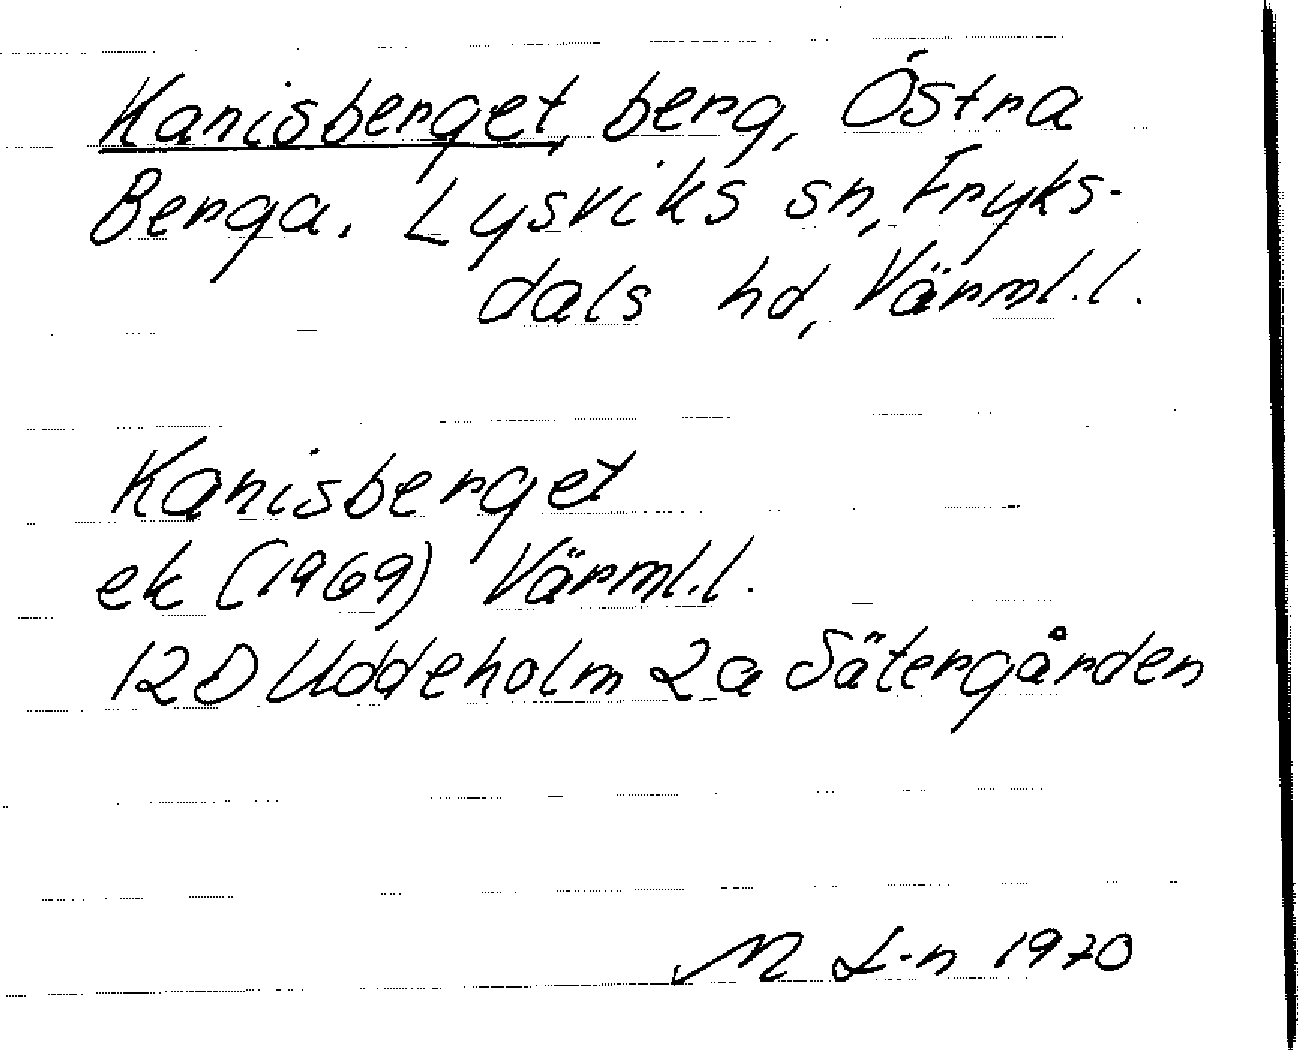 Kanisberget, berg, Östra
Berga. Lysviks sn, Fryks-
dals hd, Värml.l.
Kanisberget
ek (1969) Värml.l.
12D Uddeholm 2a Sätergården
M L-n 1970